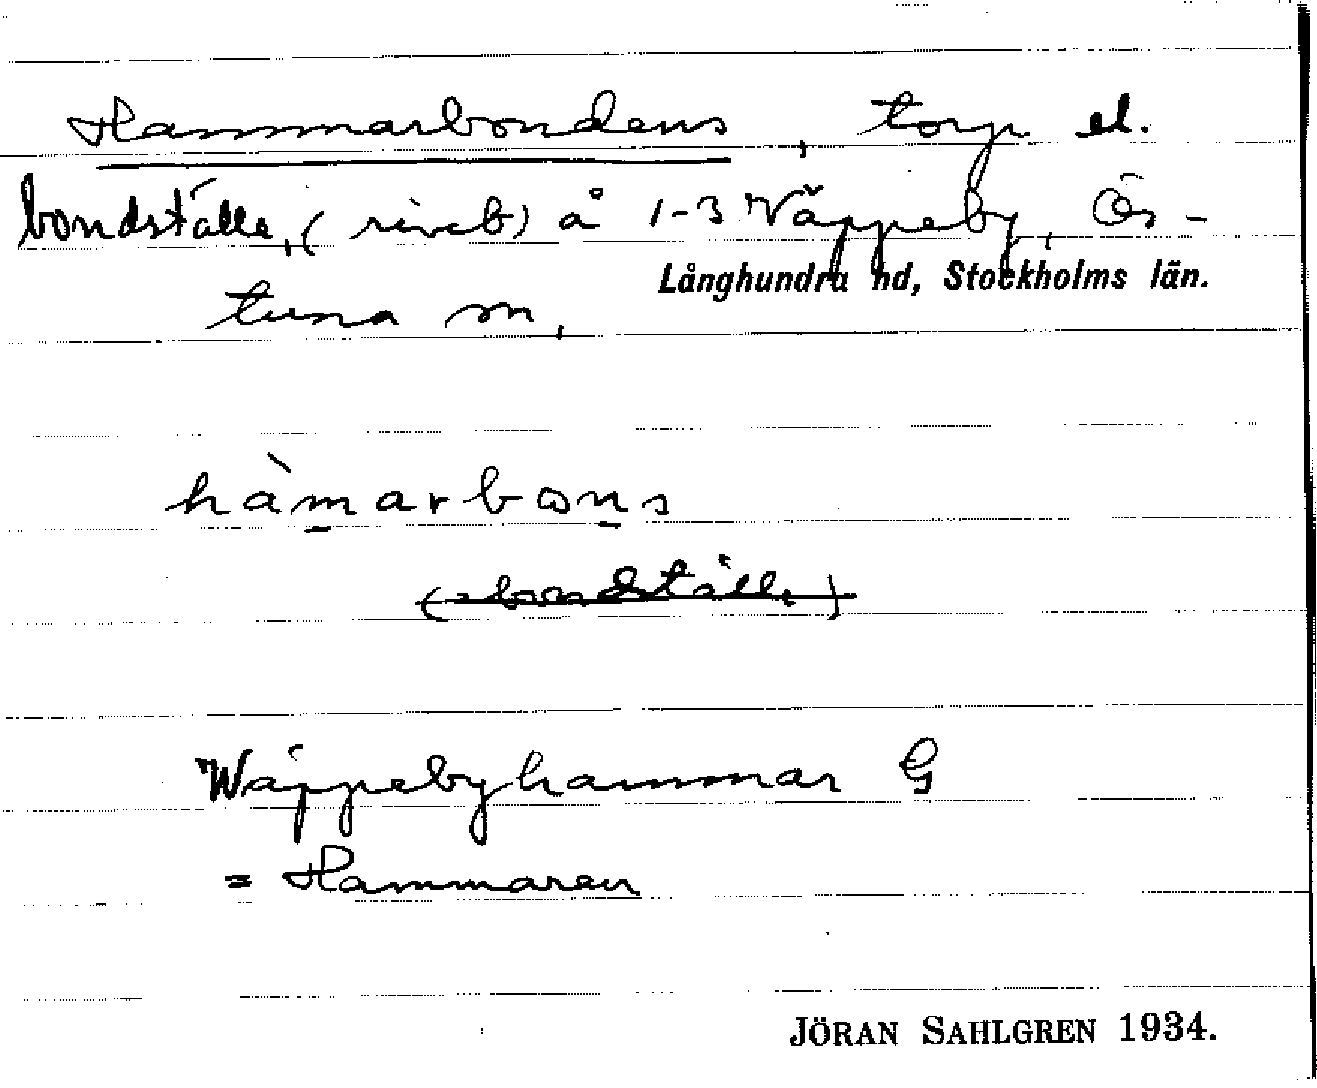 Hammarbondens, torp el.
bondställe, (rivet) å 1-3 Väppeby, Ös-
Långhundra hd, Stockholms län.
tuna sn,
hàmarbωns
(bondställe)
Wäppebyhammar G
= Hammaren
JÖRAN SAHLGREN 1934.